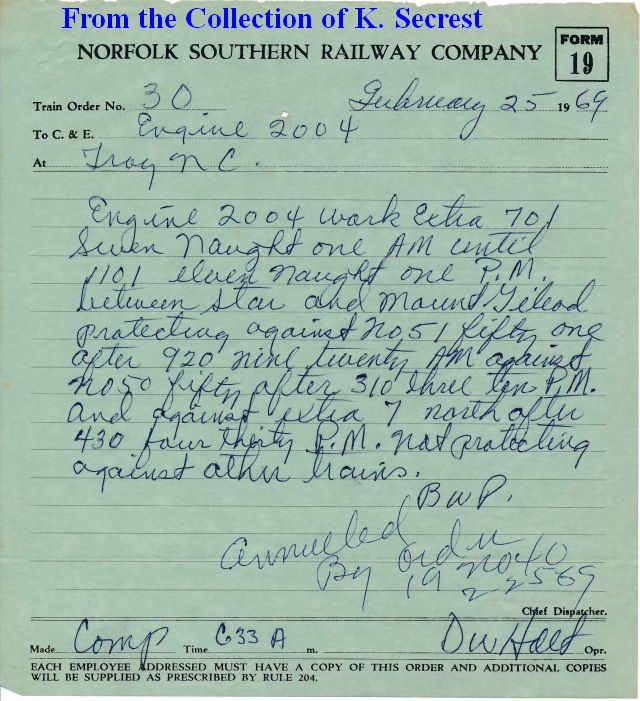 From the Collection of K. Secrest
NORFOLK SOUTHERN RAILWAY COMPANY
FORM 19
Train Order No. 30 February 25 1969
To C. & E. Engine 2004
At Troy N C.
Engine 2004 work Extra 701
Seven Naught one AM until
1101 eleven naught one P.M.
between Star and Mount Gilead
protecting against No 51 fifty one
after 920 nine twenty AM against
No 50 fifty after 310 three ten P.M.
and against extra 7 north after
430 four thirty P.M. not protecting
against other trains.
BWP.
Annulled
By order No 40
19 2-25 69
Chief Dispatcher.
Made Comp Time 633 A m. DW Holt Opr.
EACH EMPLOYEE ADDRESSED MUST HAVE A COPY OF THIS ORDER AND ADDITIONAL COPIES
WILL BE SUPPLIED AS PRESCRIBED BY RULE 204.